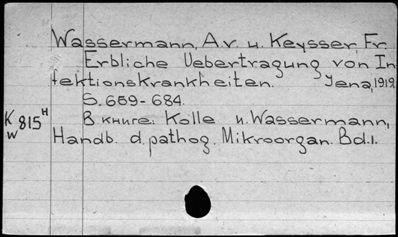 Wassermann, A.v. u. Keysser, Fr.
Erbliche Uebertragung von In
fektionskrankheiten. Jena, 1919.
S. 659-684.
K 815 H
w
В книге: Kolle u. Wassermann,
Handb. d. pathog. Mikroorgan. Bd. 1.